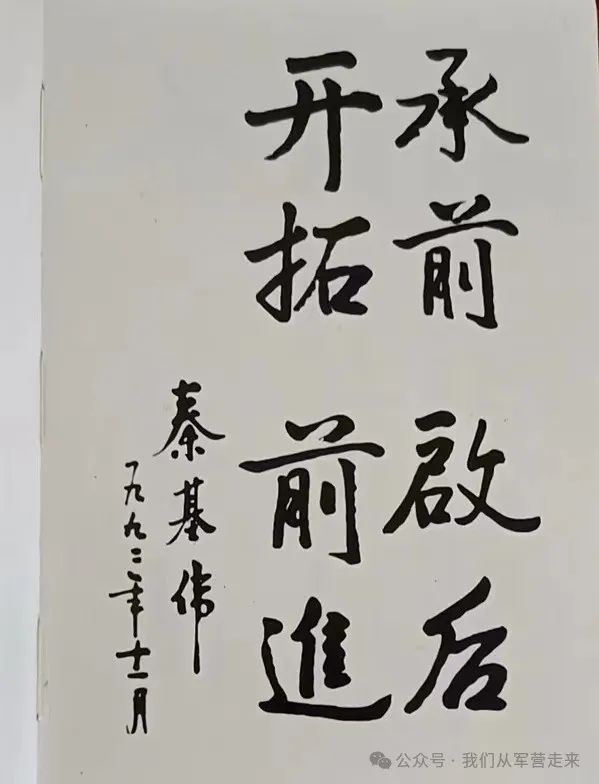 承前啟后
开拓前進
秦基伟
一九九二年十一月
公众号·我们从军营走来